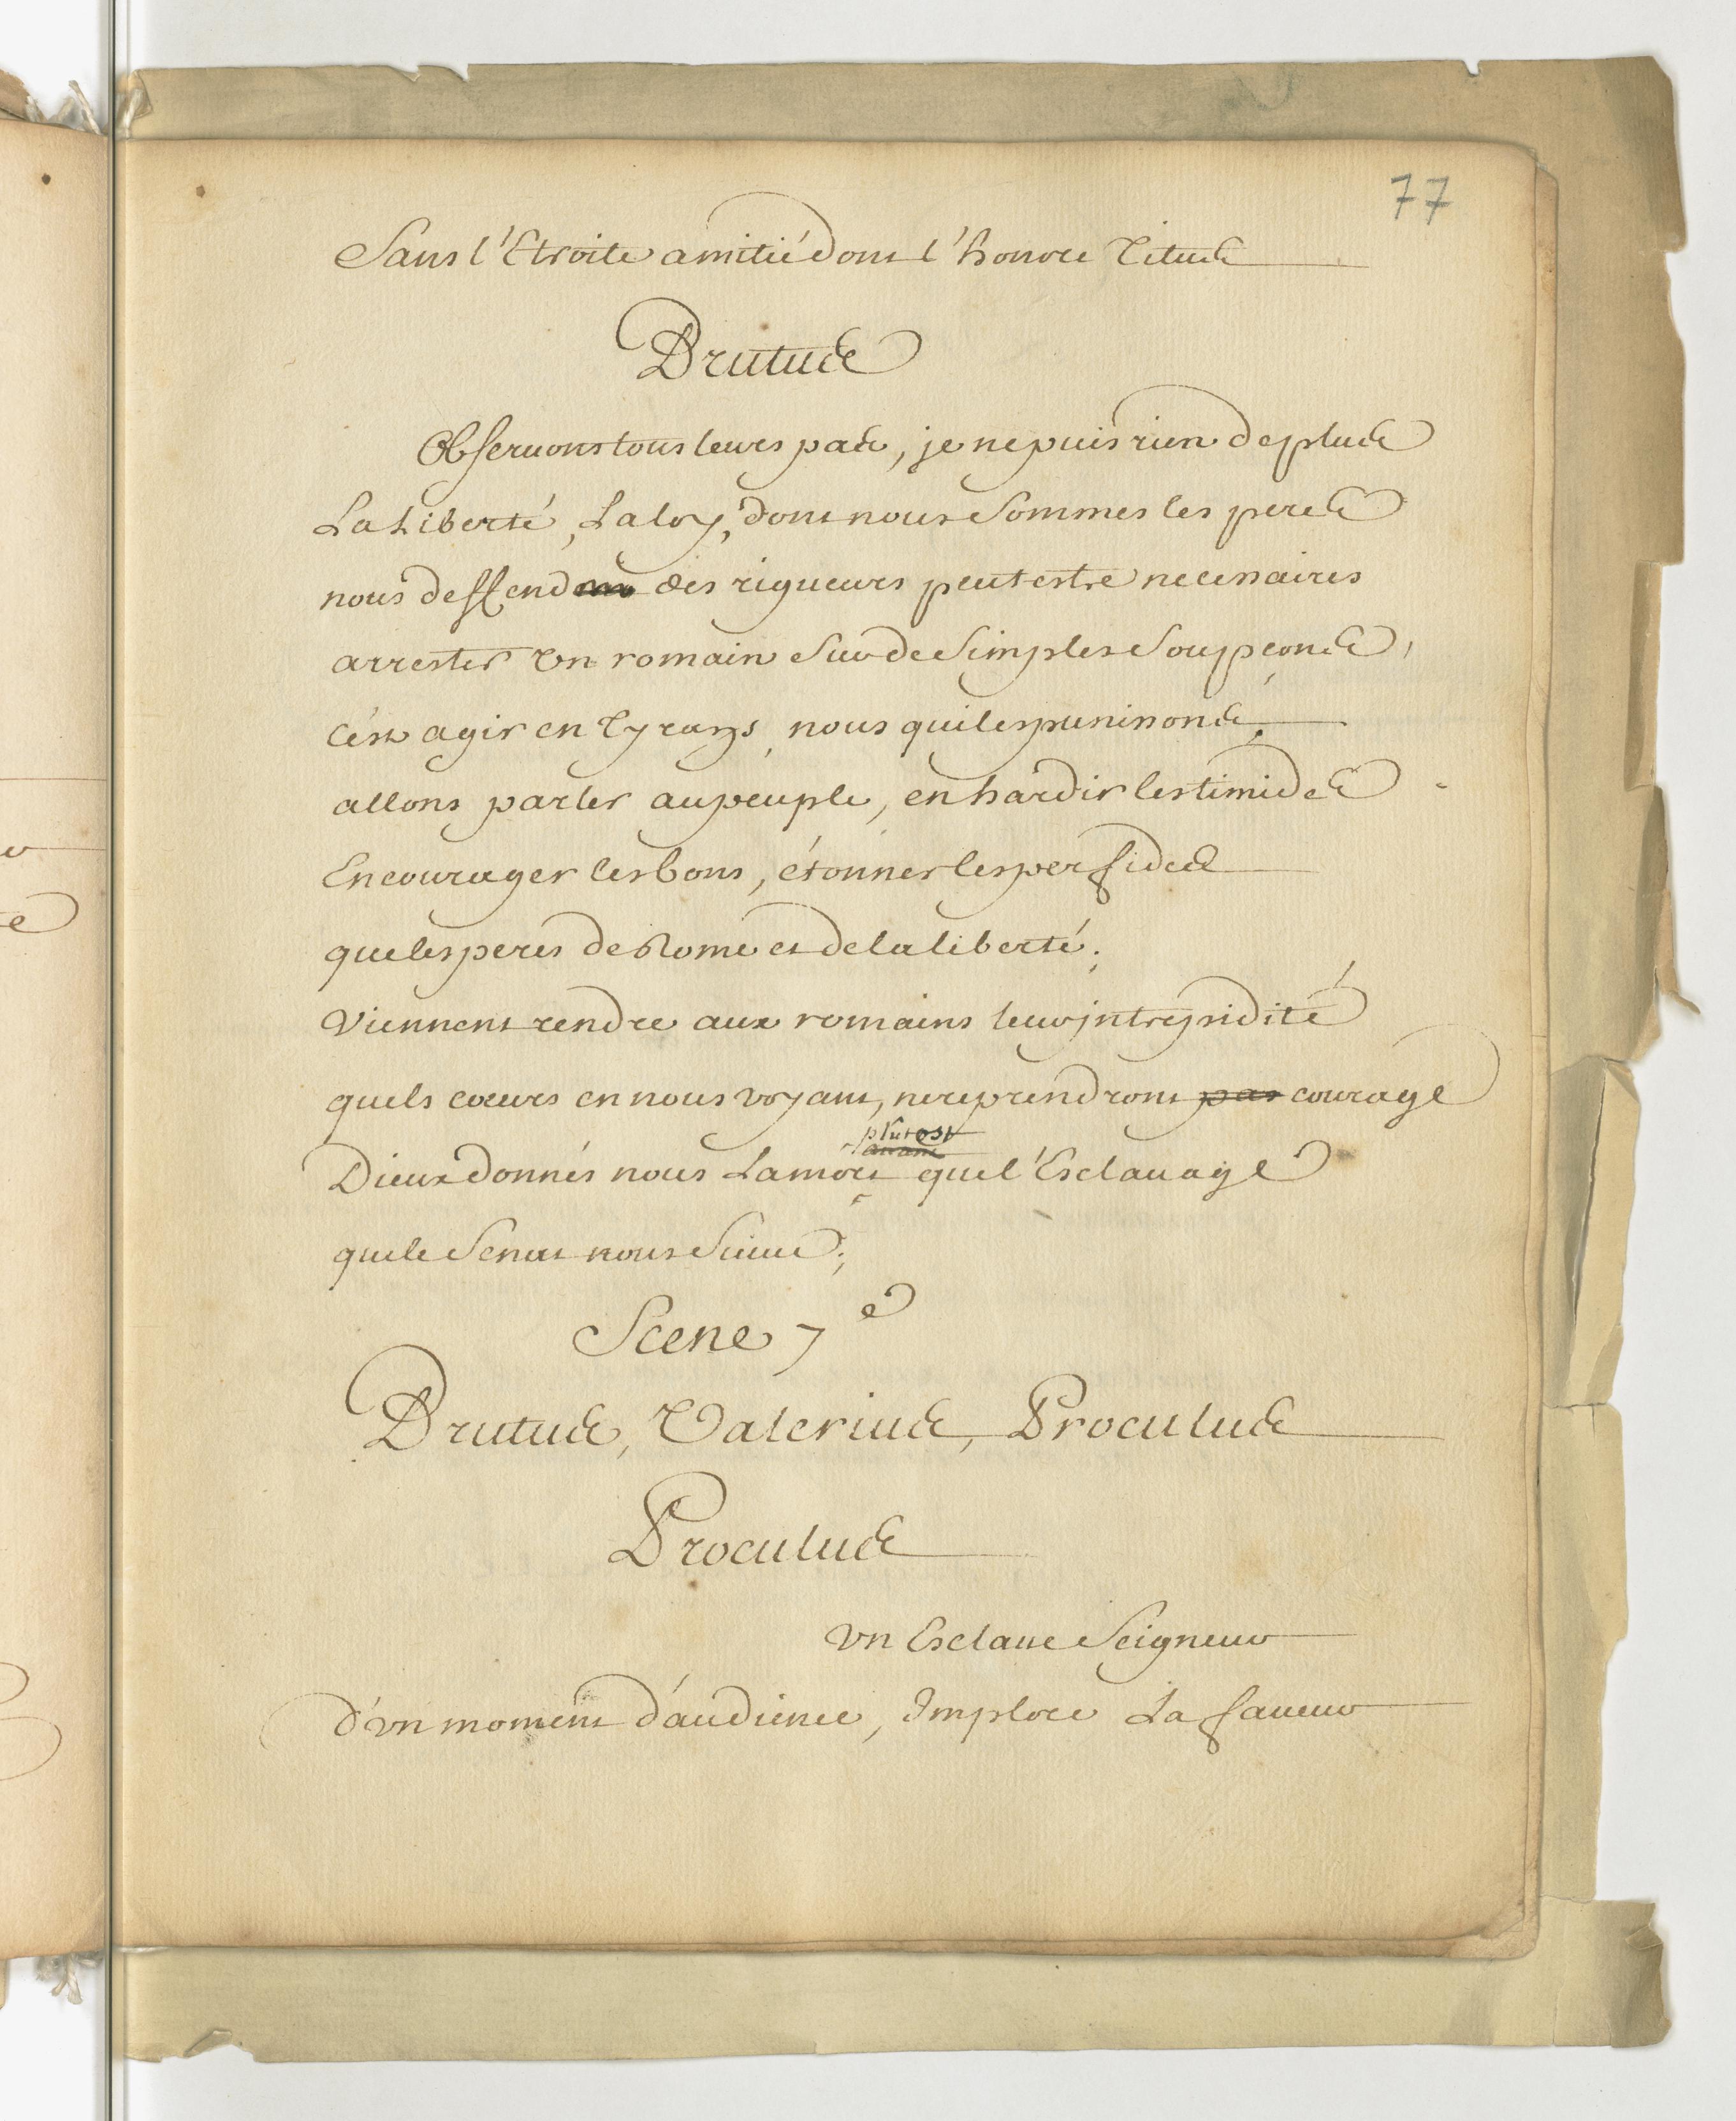 77
Sans l'Etroite amitié dont l'honore Titus
Brutus
Observons tous leurs pas, je ne puis rien de plus
La Liberté, La loy, dont nous sommes les peres
nous deffend des rigueurs peutestre necessaires
arrester Un romain sur de simples soupçons,
c'est agir en Tyrans, nous qui les punissons,
allons parler au peuple, enhardir les timides
Encourager les bons, étonner les perfides
que les peres de Rome et de la liberté,
Viennent rendre aux romains leur jntrepidité
quels cœurs en nous voyant, ne reprendront pas courage
plutost
auant
Dieux donnés nous La mort que l'Esclauage
que le Senat nous suiue,
Scene 7e
Brutus, Valerius, Proculus
Proculus
vn Esclaue Seigneur
d'vn moment d'audience, Implore La faueur